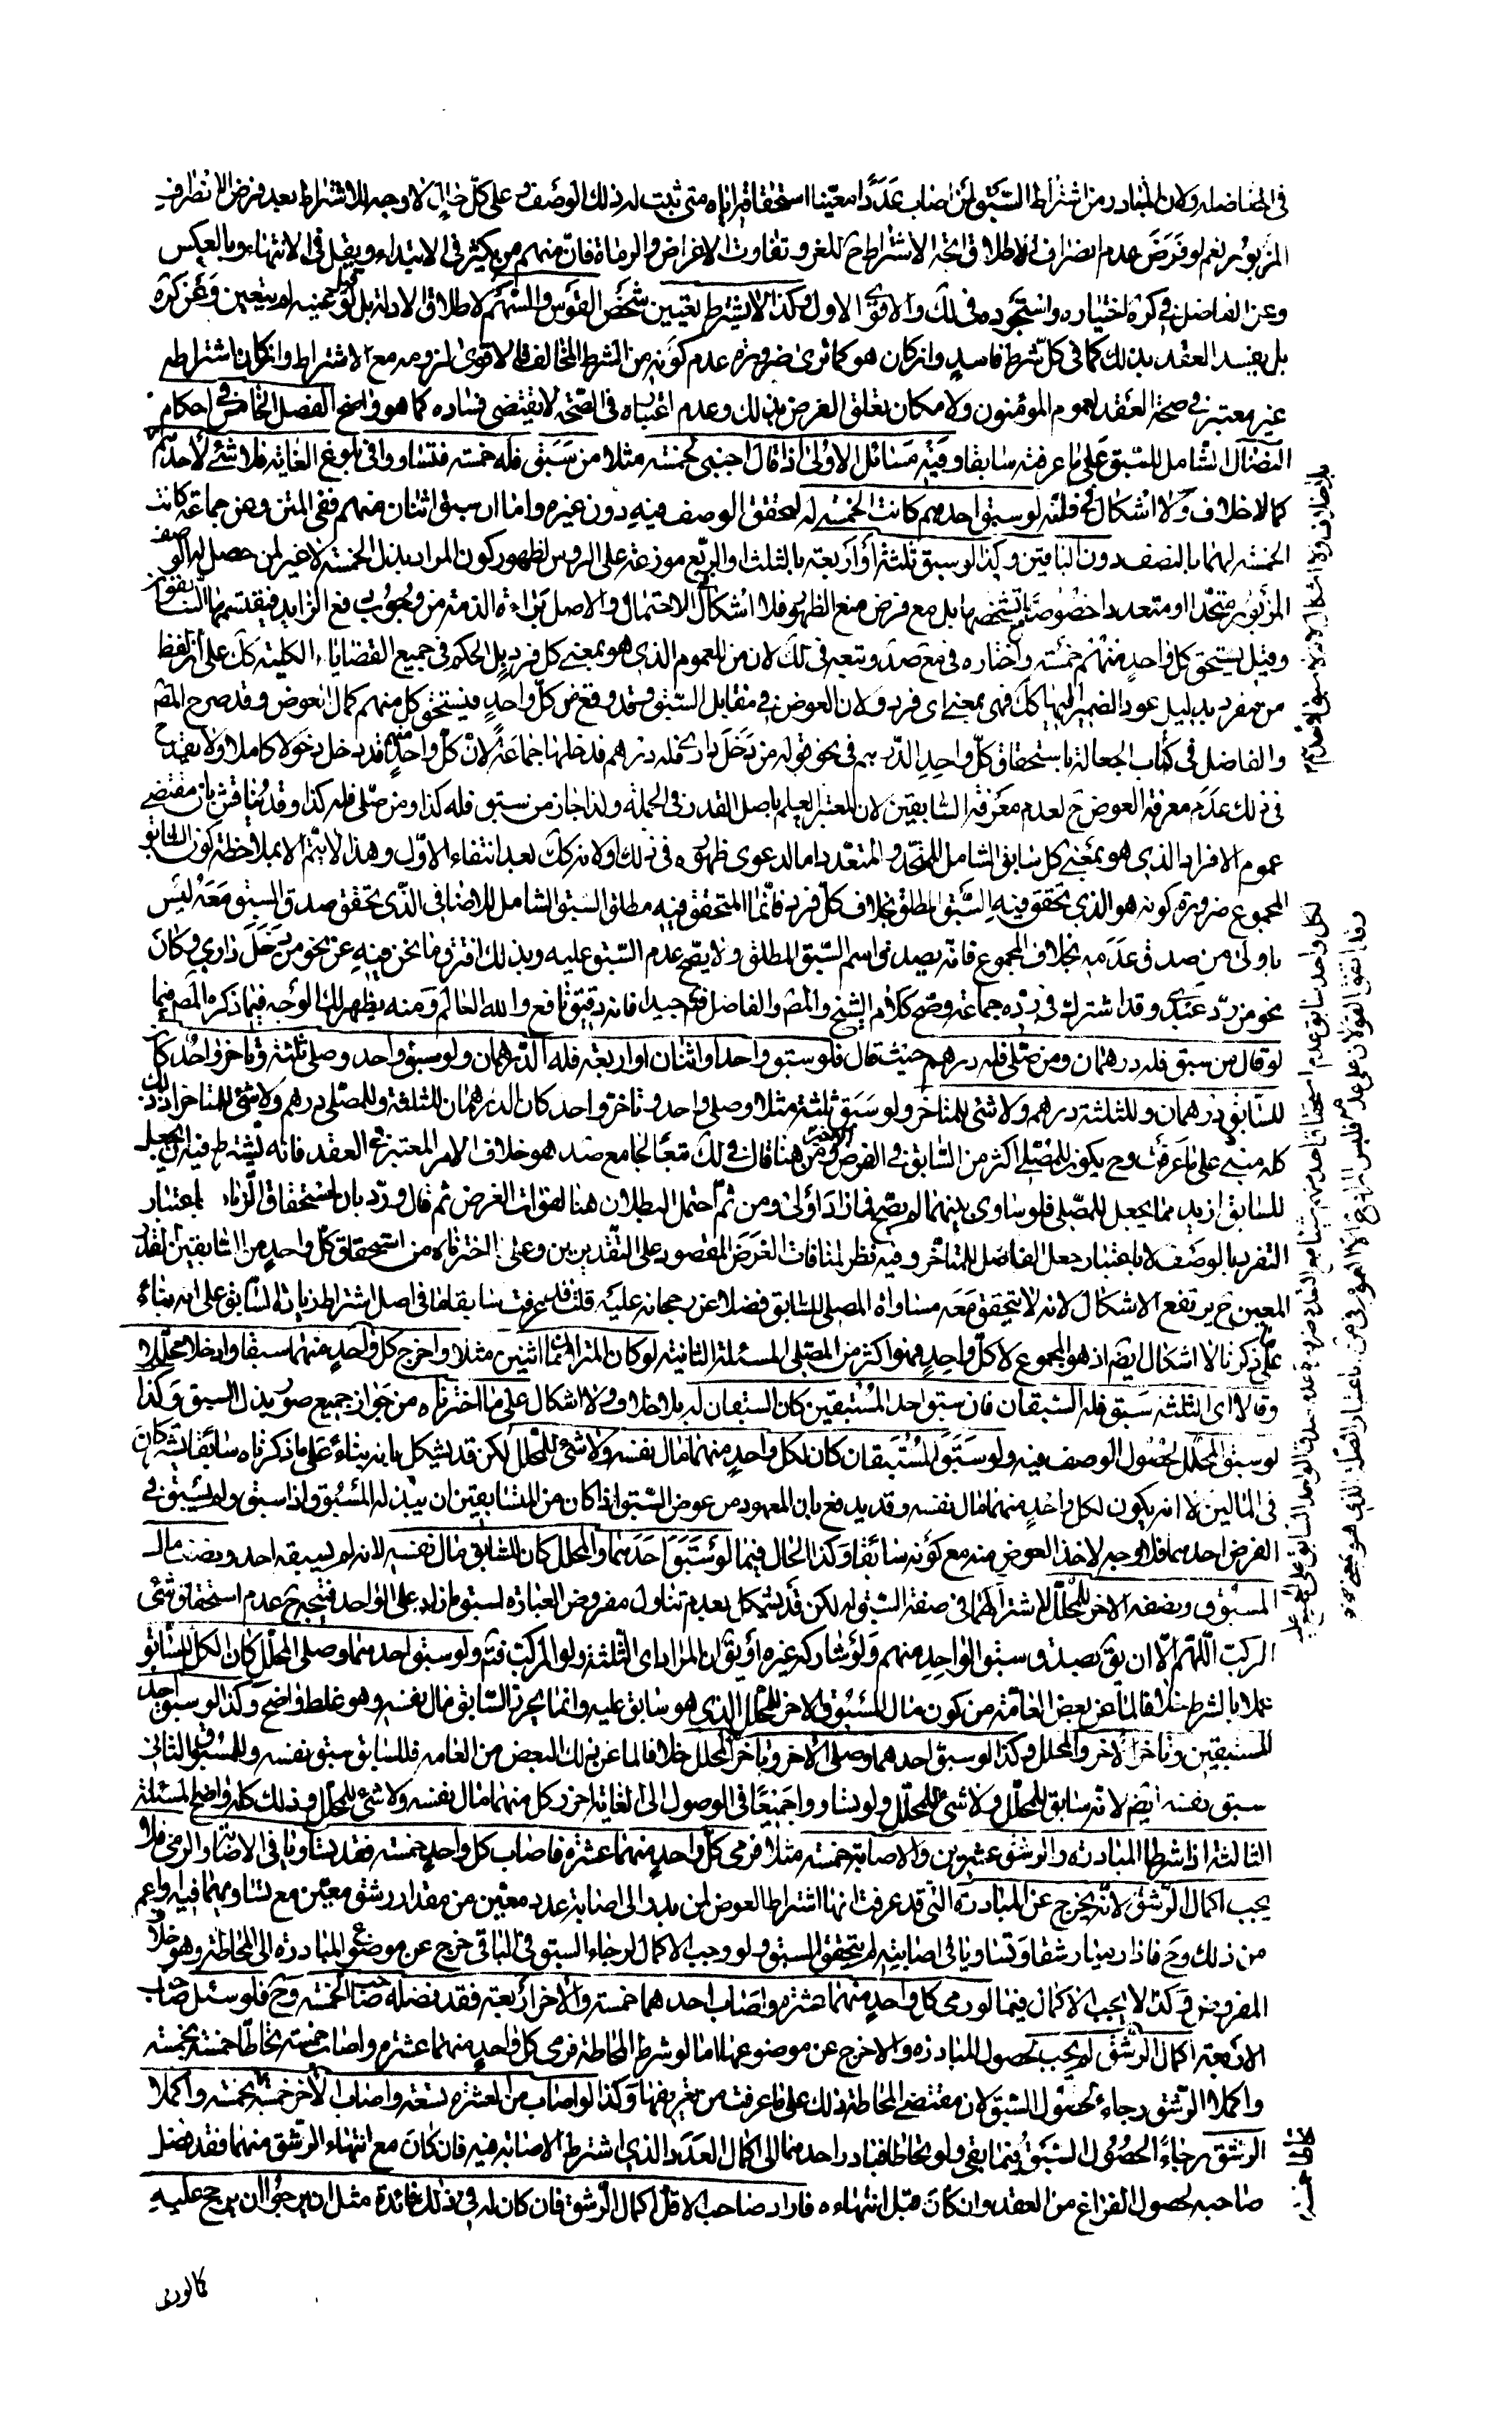 في المفاضلة ولان المتبادر من اشتراط السبق لمن اصاب عددا معينا استحقاقه اياه متى ثبت له ذلك الوصف وعلى كل حال لا وجه للاشتراط بعد فرض الانصراف
المزبور نعم لو فرض عدم انصراف الاطلاق اتجه الاشتراط ح للغرر وتفاوت الاغراض والرماة فان منهم من يكثر في الابتداء ويقل في الانتهاء وبالعكس
وعن الفاضل في كره اختياره واستجوده في لك والاقوى الاول وكذا لا يشترط تعيين شخص القوس والسهم لاطلاق الادلة بل لو عينه لم يتعين وعن كره
بل يفسد العقد بذلك كما في كل شرط فاسد وان كان هو كما ترى ضرورة عدم كونه من الشرط المخالف فالاقوى لزومه مع الاشتراط وان كان اشتراطه
غير معتبر في صحة العقد لعموم المؤمنون ولامكان تعلق الغرض بذلك وعدم اعتباره في الصحة لا يقتضي فساده كما هو واضح الفصل الخامس في احكام
النضال الشامل للسبق على ما عرفته سابقا وفيه مسائل الاولى اذا قال اجنبي لخمسة مثلا من سبق فله خمسة فتساووا في بلوغ الغاية فلا شئ لاحدهم
كما لا خلاف ولا اشكال في انه لو سبق احدهم كانت الخمسة له لتحقق الوصف فيه دون غيره واما ان سبق اثنان منهم ففي المتن وعن جماعة كانت
الخمسة لهما بالنصف دون الباقين وكذا لو سبق ثلثة او اربعة بالثلث او الربع موزعة على الروس لظهور كون المراد بذل الخمسة لا غير لمن حصل له الوصف
المزبور متحدا او متعددا خصوصا مع تشخصها بل مع فرض منع الظهور فلا اشكال في الاحتمال والاصل براءة الذمة من وجوب دفع الزايد فيقتسمها السابقون
وقيل يستحق كل واحد منهم خمسة واختاره في مع صد وتبعه في لك لان من للعموم الذي هو بمعنى كل فرد بدليل الحكم في جميع القضايا الكلية كك على ان لفظ
من مفرد بدليل عود الضمير اليها كك فهي بمعنى اي فرد ولان العوض في مقابل السبق وقد وقع من كل واحد فيستحق كل منهم كمال العوض وقد صرح المص
والفاضل في كتاب الجعالة باستحقاق كل واحد الدرهم في نحو قوله من دخل داري فله درهم فدخلها جماعة لان كل واحد منهم قد دخل دخولا كاملا ولا يقدح
في ذلك عدم معرفة العوض ح لعدم معرفة السابقين لان المعتبر العلم باصل القدر في الجملة ولذا جاز من سبق فله كذا ومن صلى فله كذا وقد يناقش بان مقتضى
عموم الافراد الذي هو بمعنى كل سابق الشامل للمتحد والمتعدد اما لدعوى ظهوره في ذلك او لانه كك بعد انتفاء الاول وهذا لا يتم الا بملاحظة كون السابق
المجموع ضرورة كونه هو الذي تحقق فيه السبق المطلق بخلاف كل فرد فانما المتحقق فيه مطلق السبق الشامل للاضافي الذي تحقق صدق السبق معه ليس
باولى من صدق عدمه بخلاف المجموع فانه يصدق اسم السبق المطلق ولا يصح عدم السبق عليه وبذلك افترق ما نحن فيه عن نحو من دخل داري وكان
نحو من رد عبدي وقد اشترك في رده جماعة وصح كلام الشيخ والمص والفاضل فتم جيدا فانه دقيق نافع والله العالم ومنه يظهر لك الوجه فيما ذكره المص فيما
لو قال من سبق فله درهمان ومن صلى فله درهم حيث قال فلو سبق واحد او اثنان او اربعة فله الدرهمان ولو سبق واحد وصلى ثلثة وتاخر واحد كان
للسابق درهمان وللثلثة درهم ولا شئ للمتاخر ولو سبق ثلثة مثلا وصلى واحد وتاخر واحد كان الدرهمان للثلثة وللمصلى درهم ولا شئ للمتاخر اذ ذلك
كله مبني على ما عرفت وح يكون للمصلى اكثر من السابق في الفرض الاخير ومن هنا قال في لك تبعا لجامع صد هو خلاف الامر المعتبر في العقد فانه يشترط فيه ان يجعل
للسابق ازيد مما يجعل للمصلى فلو ساوى بينهما لم يصح فاذا زاد اولى ومن ثم احتمل البطلان هنا لفوات الغرض ثم قال ورد بان استحقاق الزياد باعتبار
التفرد بالوصف لا باعتبار جعل الفاضل للمتأخر وفيه نظر لمنافات الغرض المقصود على التقديرين وعلى ما اخترناه من استحقاق كل واحد من السابقين القدر
المعين ح يرتفع الاشكال لانه لا يتحقق معه مساواة المصلى للسابق فضلا عن رجحانه عليه قلت قد عرفت سابقا ما في اصل اشتراط زيادة السابق على انه بناء
على ما ذكرنا لا اشكال ايضم اذ هو المجموع لا كل واحد فهو اكثر من المصلى المسئلة الثانية لو كان المتراهنان اثنين مثلا واخرج كل واحد منهما سبقا وادخلا محللا
وقالا اى الثلثة سبق فله السبقان فان سبق احد المستبقين كان السبقان له بلا خلاف ولا اشكال على ما اخترناه من جواز جميع صور بذل السبق وكذا
لو سبق المحلل لحصول الوصف فيه ولو سبق المستبقان كان لكل واحد منهما مال نفسه ولا شئ للمحلل لكن قد يشكل بانه بناء على ما ذكرناه سابقا يشتركان
في المالين لا انه يكون لكل واحد منهما مال نفسه وقد يدفع بان المعهود من عوض السبق اذا كان من المتسابقين ان يبذله المسبوق اذا سبق ولم يسبق في
الفرض احدهما فلا وجه لاخذ العوض منه مع كونه سابقا وكذا الحال فيما لو سبق احدهما والمحلل كان للسابق مال نفسه لانه لم يسبقه احد ونصف مال
المسبوق ونصفه الاخر للمحلل لاشتراكهما في صفة السبق له لكن قد يشكل بعدم تناول مفروض العبارة لسبق ما زاد على الواحد فيتجه ح عدم استحقاق شئ
المركب اللهم الا ان يق يصدق سبق الواحد منهم ولو شاركه غيره او يق ان المراد اى الثلثة ولو المركب فتم ولو سبق احدهما وصلى المحلل كان الكل للسابق
عملا بالشرط خلافا لما عن بعض العامة من كون مال المسبوق الاخر للمحلل الذي هو سابق عليه وانما يحرز السابق مال نفسه وهو غلط واضح وكذا لو سبق احد
المستبقين وتاخر الاخر والمحلل وكذا لو سبق احدهما وصلى الاخر وتاخر المحلل خلافا لما عن ذلك البعض من العامه فللسابق سبق نفسه وللمسبوق الثاني
سبق نفسه ايضم لانه سابق للمحلل ولا شئ للمحلل ولو تساووا جميعا في الوصول الى الغاية احرز كل منهما مال نفسه ولا شئ للمحلل وذلك كله واضح المسئلة
الثالثة اذا شرطا المبادرة والرشق عشرين والاصابة خمسة مثلا فرمى كل واحد منهما عشرة فاصاب كل واحد خمسة فقد تساويا في الاصابة والرمي فلا
يجب اكمال الرشق لانه يخرج عن المبادرة التي قد عرفت انها اشتراط العوض لمن بدر الى اصابة عدد معين من مقدار رشق معين مع تساويهما فيه واعم
من ذلك وح فاذا رميا رشقا وتساويا في اصابته لم يتحقق السبق ولو وجب الاكمال لرجاء السبق في الباقي خرج عن موضع المبادرة الى المحاطة وهو خلاف
المفروض وكذا لا يجب الاكمال فيما لو رمى كل واحد منهما عشرة واصاب احدهما خمسة والاخر اربعة فقد نضله صاحب الخمسة وح فلو سئل صاحب
الاربعة اكمال الرشق لم يجب لحصول المبادرة والا خرج عن موضوعها اما لو شرطا المحاطة فرمى كل واحد منهما عشرة واصاب خمسة تحاطا خمسة بخمسة
واكملا الرشق رجاء لحصول السبق لان مقتضى المحاطة ذلك على ما عرفت من تعريفها وكذا لو اصاب من العشرة تسعة واصاب الاخر خمسة تحاطا خمسة بخمسة واكملا
الرشق رجاء لحصول السبق فيما بقى ولو تحاطا فبادر احدهما الى اكمال العدد الذي اشترط الاصابة فيه فان كان مع انتهاء الرشق منهما فقد نضل
صاحبه لحصول الفراغ من العقد وان كان قبل انتهاءه فاراد صاحب الاقل اكمال الرشق فان كان له في ذلك فائدة مثل ان يرجوا ان يرجح عليه
كما لو رمى